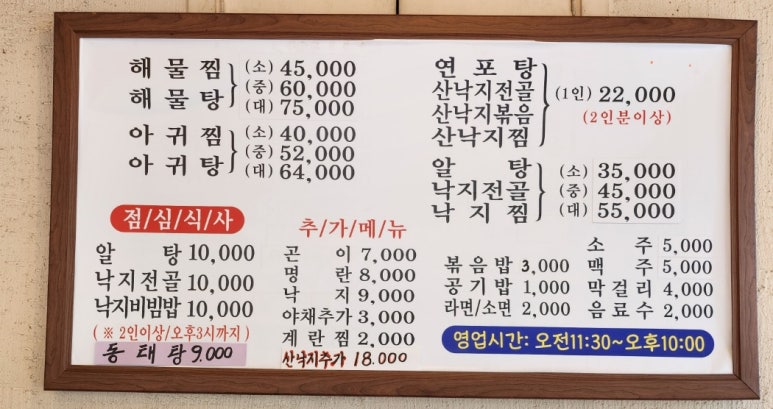 해물찜 (소) 45,000
해물탕 (중) 60,000
(대) 75,000
아귀찜 (소) 40,000
아귀탕 (중) 52,000
(대) 64,000
연포탕
산낙지전골 (1인) 22,000
산낙지볶음 (2인분이상)
산낙지찜
알탕 (소) 35,000
낙지전골 (중) 45,000
낙지찜 (대) 55,000
점/심/식/사
알탕 10,000
낙지전골 10,000
낙지비빔밥 10,000
(※ 2인이상/오후3시까지)
동태탕 9.000
추/가/메/뉴
곤이 7,000
명란 8,000
낙지 9,000
야채추가 3,000
계란찜 2,000
산낙지추가 18.000
볶음밥 3,000
공기밥 1,000
라면/소면 2,000
소주 5,000
맥주 5,000
막걸리 4,000
음료수 2,000
영업시간: 오전11:30~오후10:00